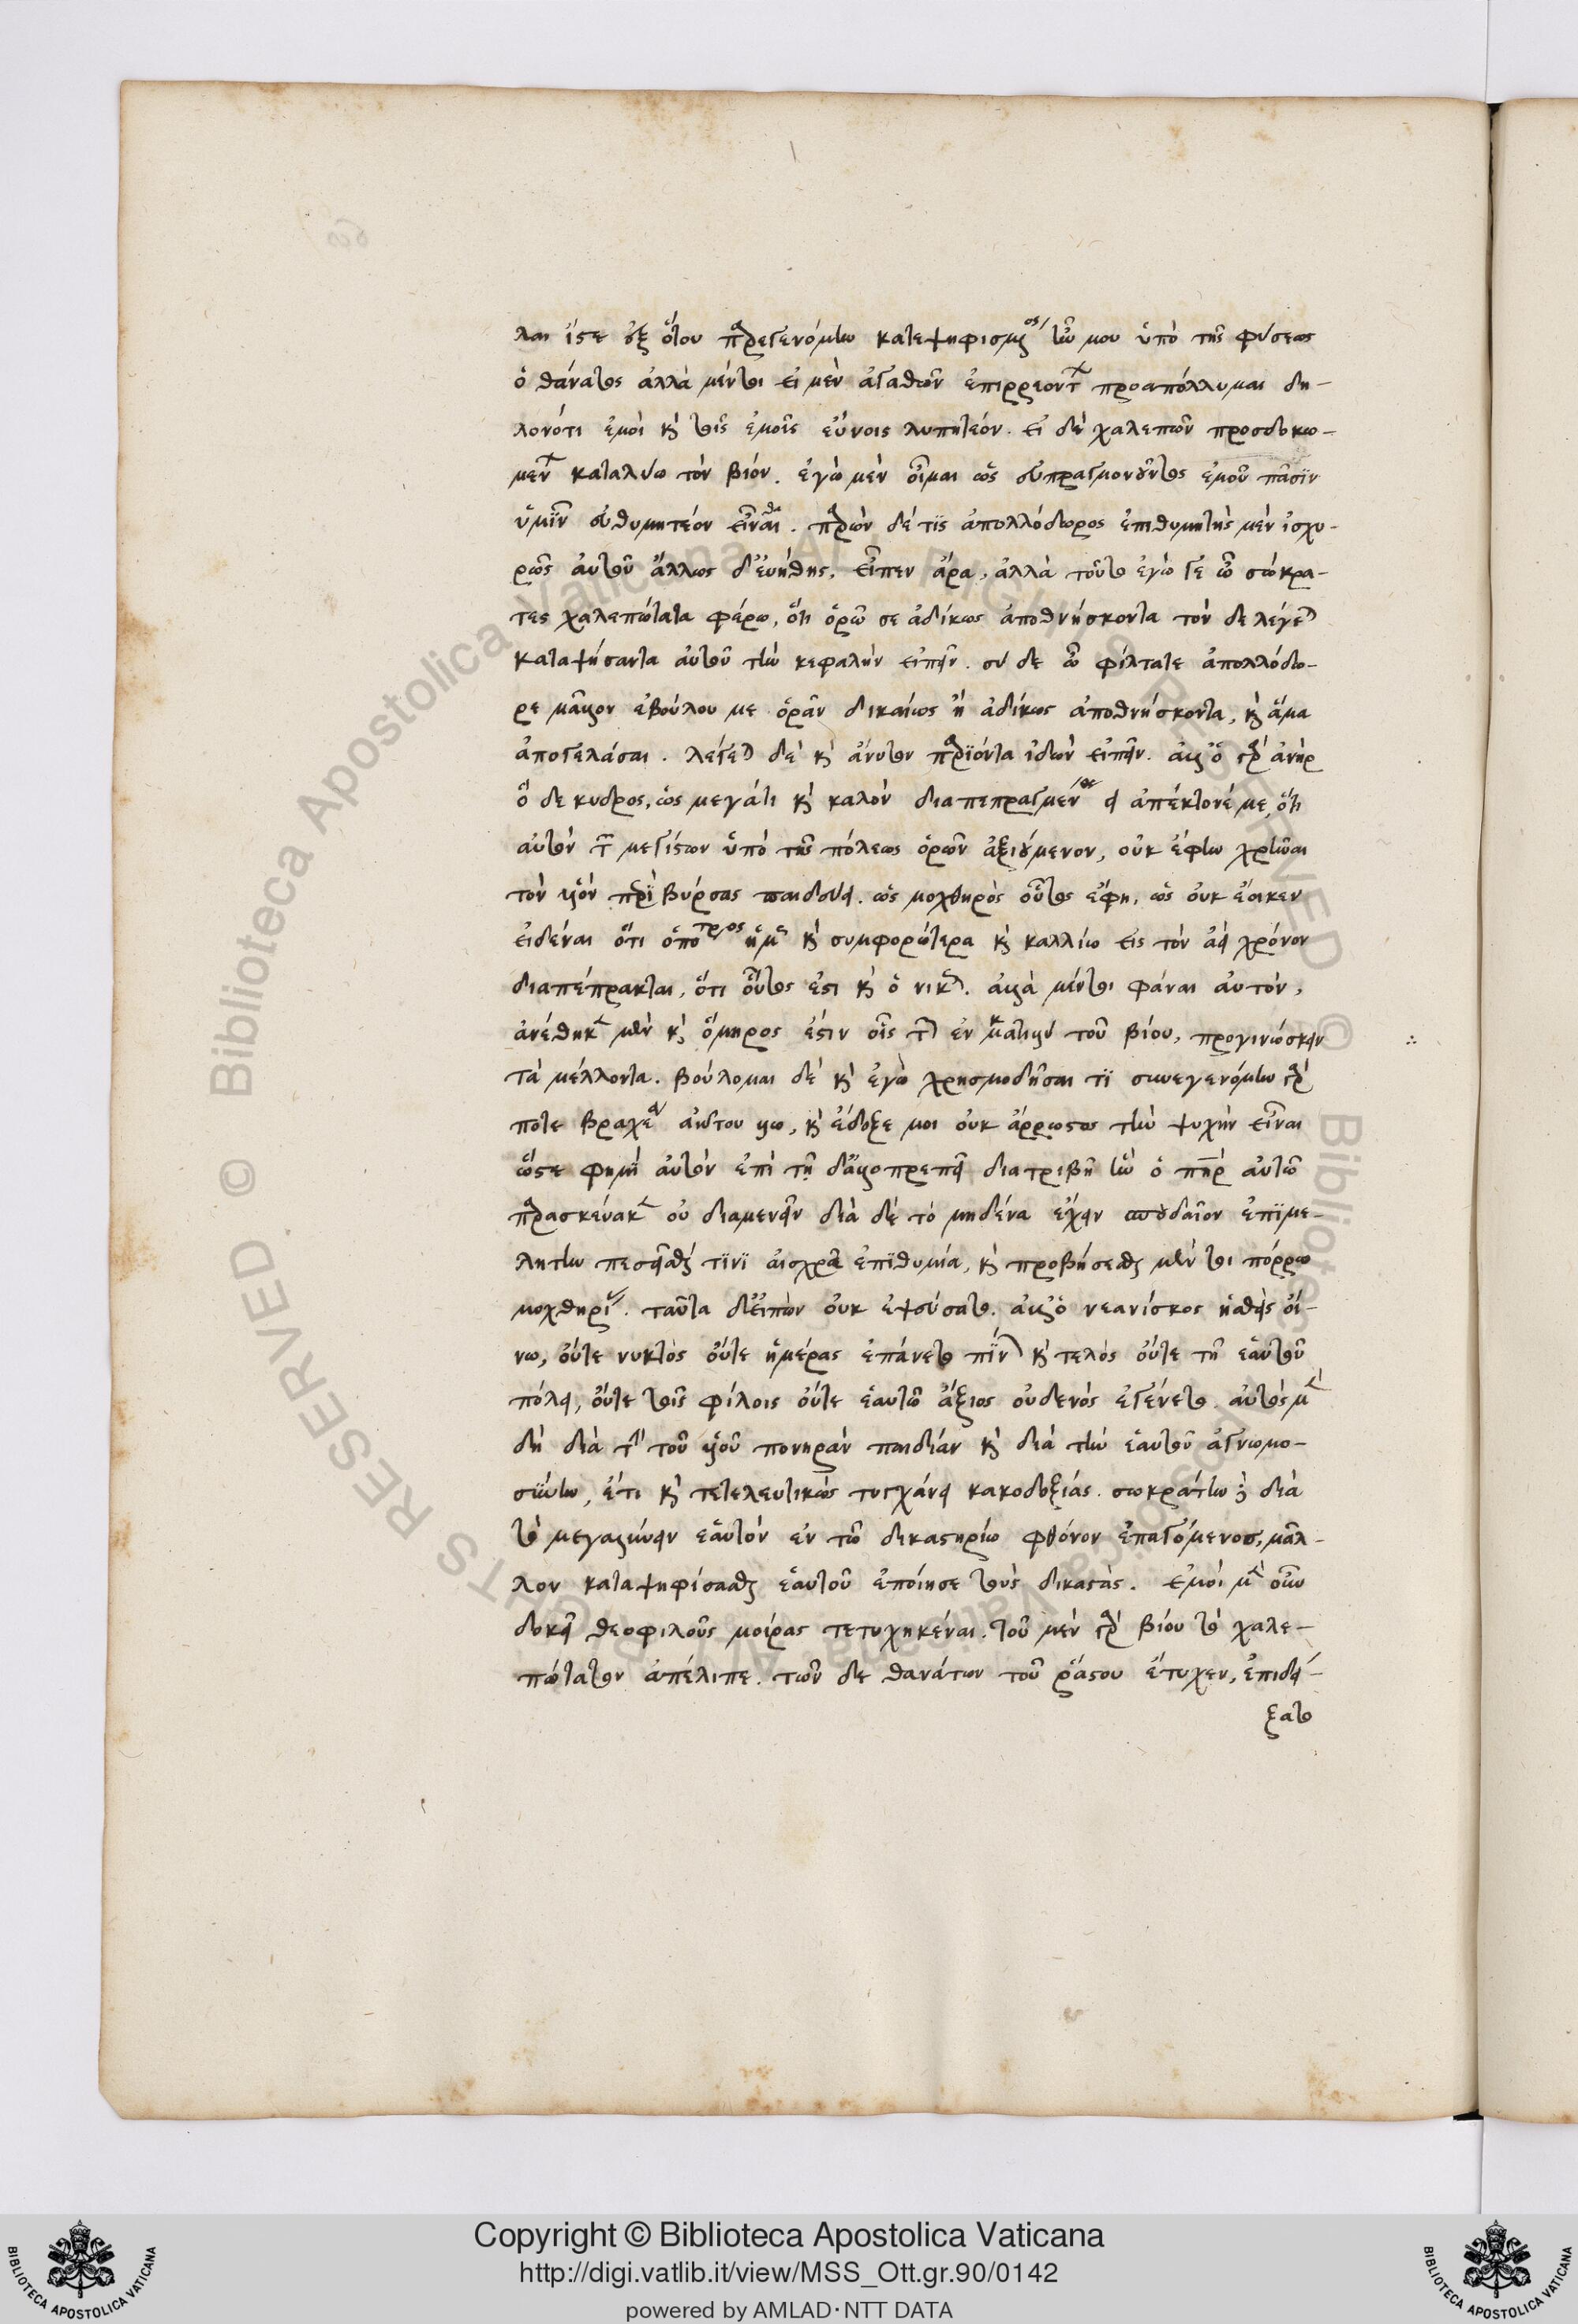 λαι ἴστε ἐξ ὅτου παρεγενόμην κατεψηφισμένος ἦν μου ὑπὸ τῆς φύσεως
ὁ θάνατος ἀλλὰ μέντοι εἰ μὲν ἀγαθῶν ἐπιρρεόντων προαπόλλυμαι δη-
λονότι ἐμοὶ καὶ τοῖς ἐμοῖς εὔνοις λυπητέον. εἰ δὲ χαλεπῶν προσδοκω-
μένων καταλύω τὸν βίον. ἐγὼ μὲν οἶμαι ὡς εὐπραγμονοῦντος ἐμοῦ πᾶσϊν
ὑμῖν εὐθυμητέον εἶναι. παρὼν δέ τϊς ἀπολλόδωρος ἐπιθυμητὴς μὲν ἰσχυ-
ρῶς αὐτοῦ ἄλλως δ' εὐήθης, εἶπεν ἄρα, ἀλλὰ τοῦτο ἐγώ γε ὦ σώκρα-
τες χαλεπώτατα φέρω, ὅτι ὁρῶ σε ἀδίκως ἀποθνήσκοντα τὸν δὲ λέγεται
καταψήσαντα αὐτοῦ τὴν κεφαλὴν εἰπεῖν. σὺ δὲ ὦ φίλτατε ἀπολλόδω-
ρε μᾶλλον ἐβούλου με ὁρᾶν δικαίως ἢ ἀδίκως ἀποθνήσκοντα, καὶ ἅμα
ἀπογελάσαι. λέγεται δὲ καὶ ἄνυτον παρϊόντα ἰδὼν εἰπεῖν. ἀλλ' ὁ γὰρ ἀνὴρ
ὅ δε κυδρος, ὡς μεγάτι καὶ καλὸν διαπεπραγμένος εἰ ἀπέκτονέ με, ὅτι
αὐτὸν τῶν μεγίστων ὑπὸ τῆς πόλεως ὁρῶν ἀξιούμενον, οὐκ ἔφην χρῆναι
τὸν υἱὸν περὶ βύρσας παιδεύειν. ὡς μοχθηρὸς οὗτος ἔφη, ὡς οὐκ ἔοικεν
εἰδέναι ὅτι ὁπότερος ἡμῶν καὶ συμφορώτερα καὶ καλλίω εἰς τὸν ἀεὶ χρόνον
διαπέπρακται, ὅτι οὗτος ἐστι καὶ ὁ νικῶν. ἀλλὰ μέντοι φάναι αὐτὸν,
ἀνέθηκε μὲν καὶ ὅμηρος ἔστιν οἷς τῶν ἐν καταλύσει τοῦ βίου, προγινώσκειν
τὰ μέλλοντα. βούλομαι δὲ καὶ ἐγὼ χρησμοδῆσαι τϊ συνεγενόμην γὰρ
ποτε βραχέα ἀνύτου υἱῳ, καὶ ἔδοξε μοι οὐκ ἄρρωστος τὴν ψυχὴν εἶναι
ὥστε φημὶ αὐτὸν ἐπὶ τῇ δουλοπρεπεῖ διατριβῇ ἣν ὁ πατὴρ αὐτῶ
παρασκεύακεν οὐ διαμενεῖν διὰ δὲ τὸ μηδένα ἔχειν σπουδαῖον ἐπϊμε-
λητὴν πεσεῖσθαι τϊνϊ αἰσχρᾶ ἐπϊθυμία, καὶ προβήσεσθαι μέν τοι πόρρω
μοχθηρίας. ταῦτα δ' εἰπὼν οὐκ ἐψεύσατο. ἀλλ' ὁ νεανίσκος ἡσθεὶς οἴ-
νω, οὔτε νυκτὸς οὔτε ἡμέρας ἐπάυετο πίνων καὶ τελὸς οὔτε τῇ ἑαυτοῦ
πόλει, οὔτε τοῖς φίλοις οὔτε ἑαυτῶ ἄξιος οὐδενὸς ἐγένετο. αὐτὸς μὲν
δὴ διὰ τὴν τοῦ υἱοῦ πονηρὰν παιδίαν καὶ διὰ τὴν ἑαυτοῦ ἀγνωμο-
σϋνην, ἔτι καὶ τετελευτικὼς τυγχάνει κακοδοξιάς. σωκράτην δὲ διὰ
τὸ μεγαλύνειν ἑαυτὸν ἐν τῶ δικαστηρίω φθόνον ἐπαγόμενος, μᾶλ-
λον καταψηφίσασθαι ἑαυτοῦ ἐποίησε τοὺς δικαστάς. ἐμοὶ μὲν οὖν
δοκεῖ θεοφιλοῦς μοίρας τετυχηκέναι. τοῦ μὲν γὰρ βίου τὸ χαλε-
πώτατον ἀπέλιπε. τῶν δὲ θανάτων τοῦ ῥάστου ἔτυχεν, ἐπιδεί-
ξατο
Copyright © Biblioteca Apostolica Vaticana
http://digi.vatlib.it/view/MSS_Ott.gr.90/0142
powered by AMLAD·NTT DATA